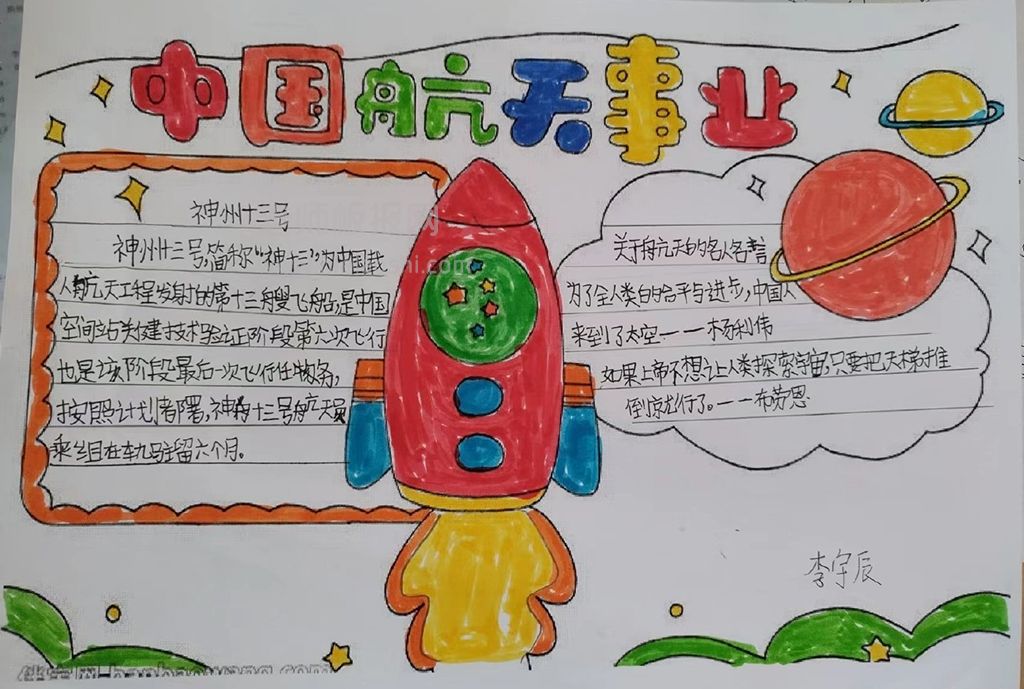 中国航天事业
神州十三号
神州十三号,简称“神十三”为中国载
人航天工程发射的第十三艘飞船,是中国
空间站关建技术验证阶段第六次飞行
也是该阶段最后一次飞行任务,
按照计划部署,神舟十三号航天员
乘组在轨驻留六个月。
关于航天的名人名言
为了全人类的和平与进步,中国人
来到了太空——杨利伟
如果上帝不想让人类探索宇宙,只要把天梯推
倒就行了。——布劳恩
李宇辰